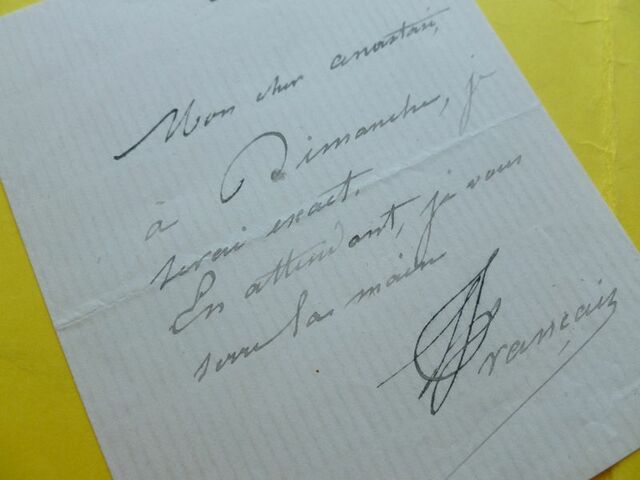 Mon cher Anastasi,
à Dimanche, je
serai exact.
En attendant, je vous
serre la main
Français